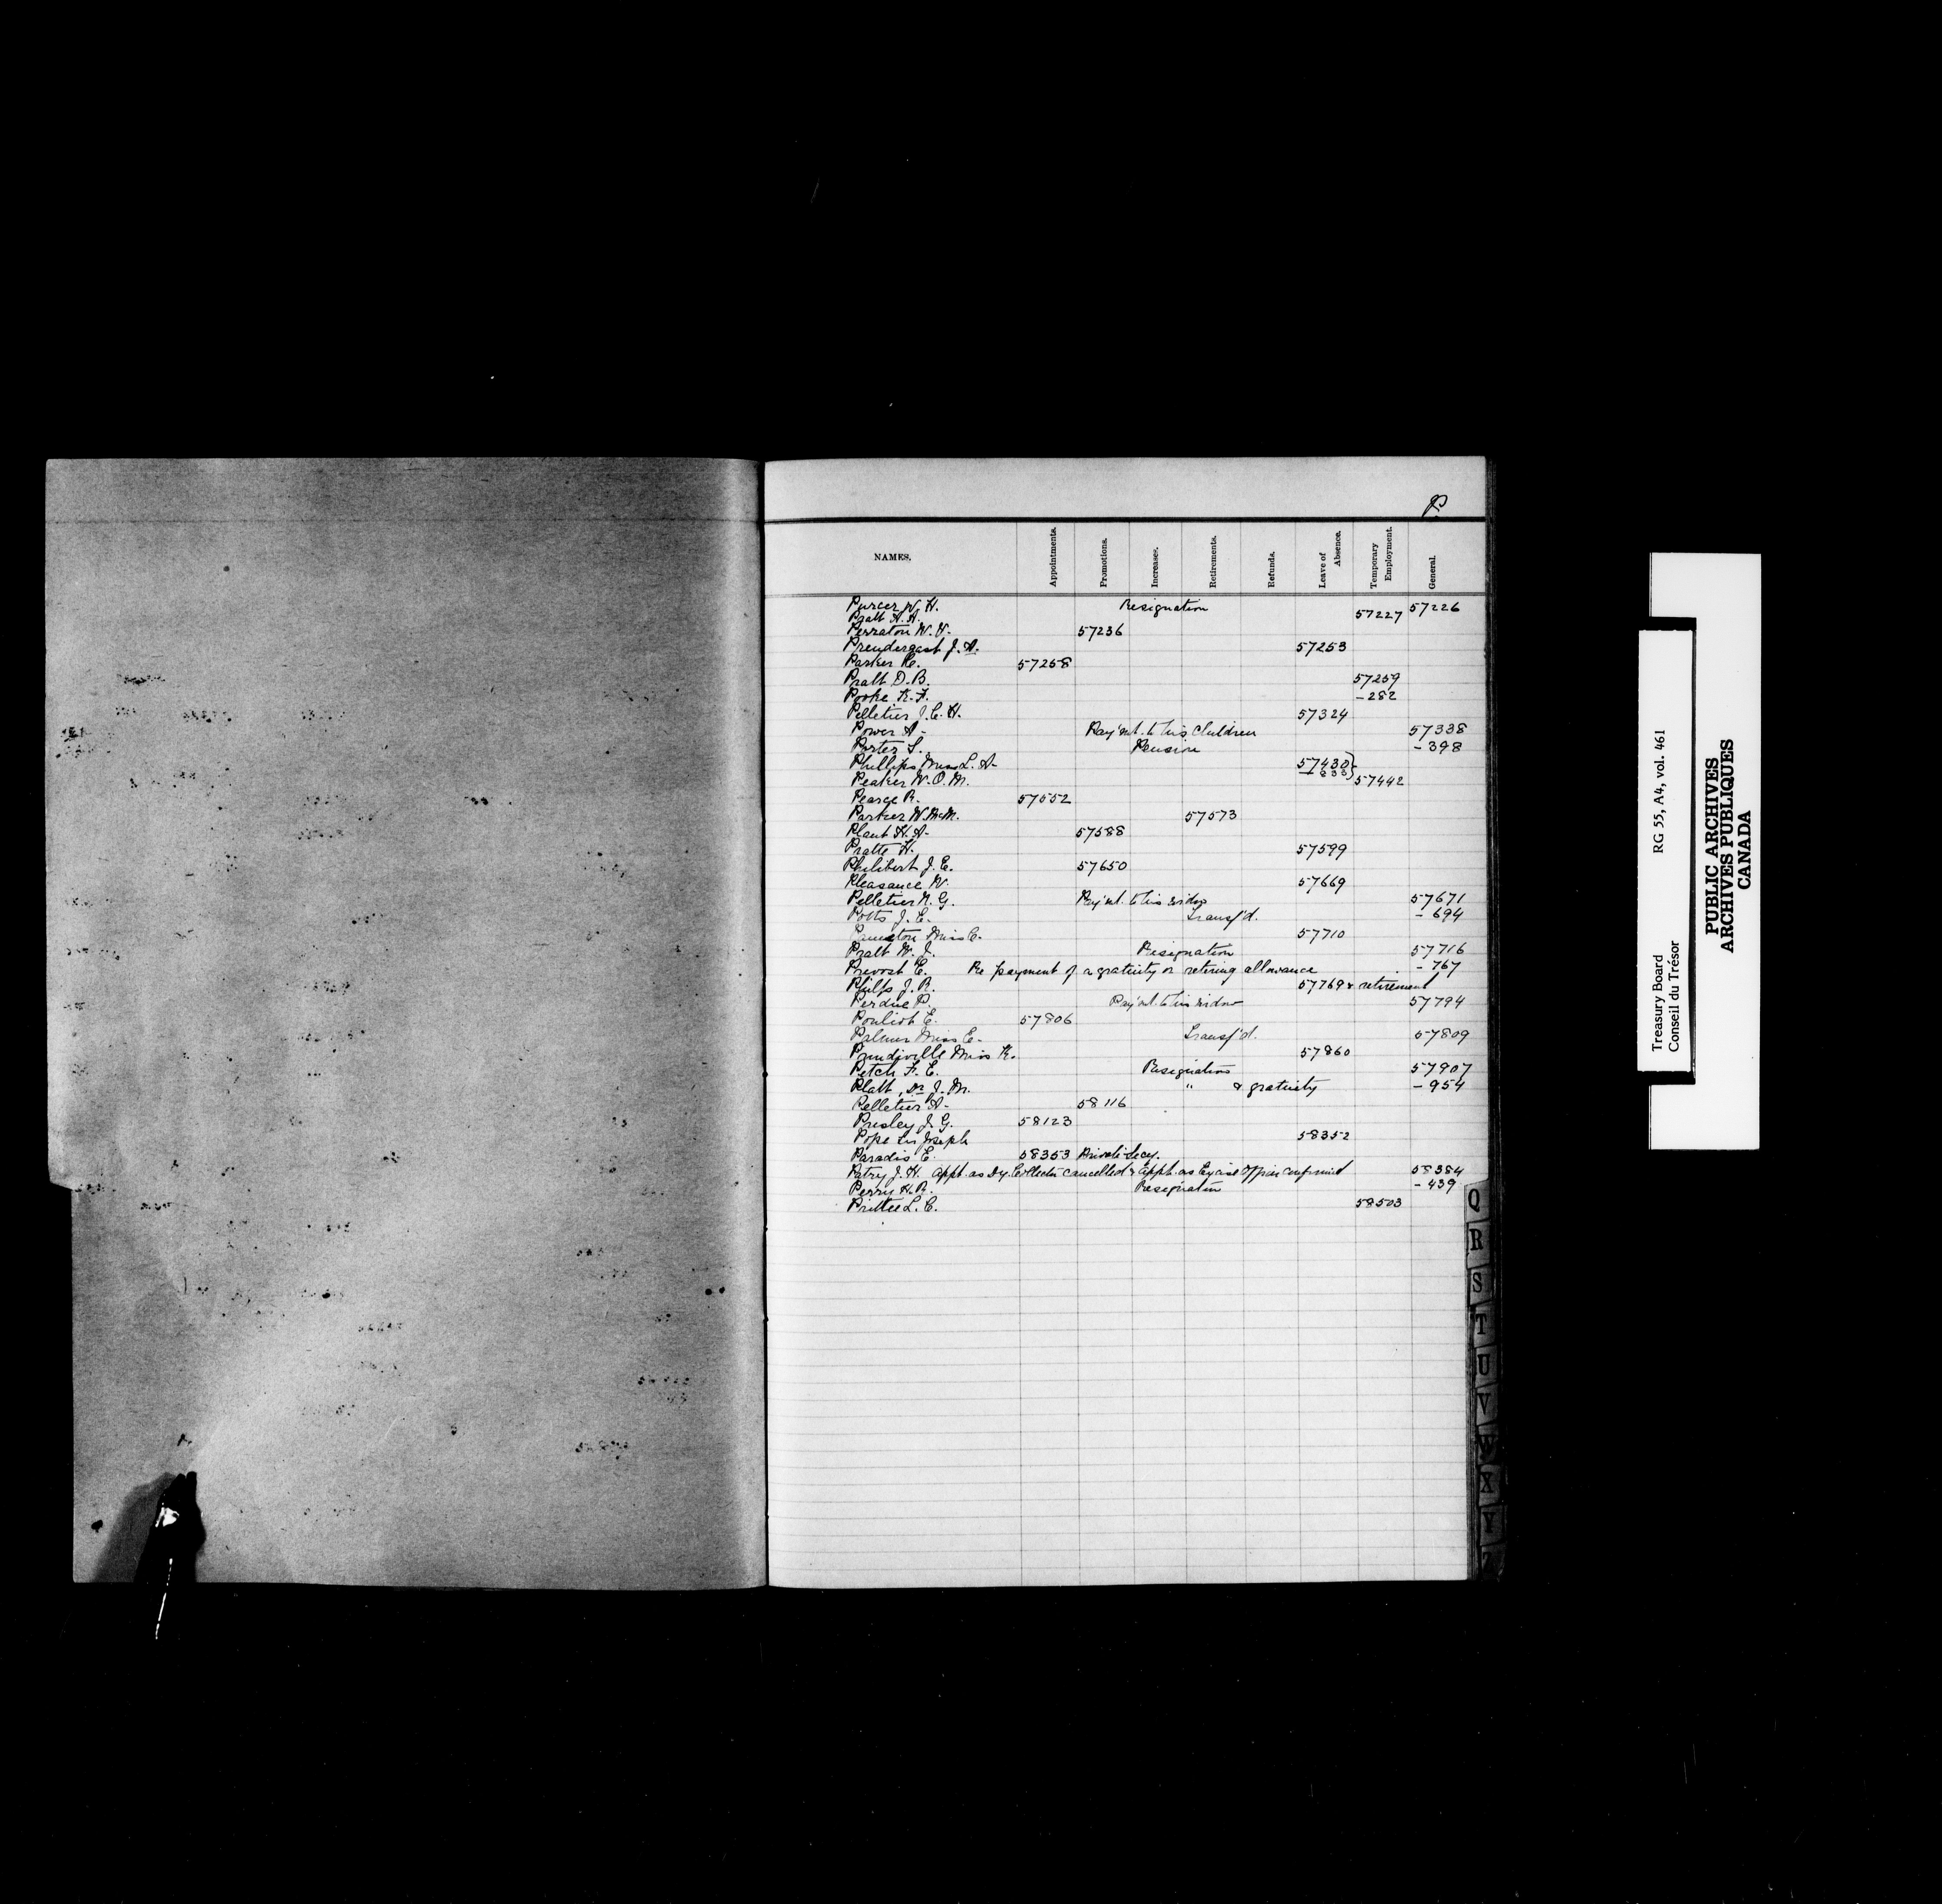 P
NAMES. Appointments. Promotions. Increases. Retirements. Refunds. Leave of Absence. Temporary Employment. General.
Purcer W. H. Resignation 57226
Pratt H. A. 57227
Perraton W. H. 57236
Prendergast J. A. 57253
Parker R. 57258
Pratt D. B. 57259
Pooke K. F. - 282
Pelletier J. C. H. 57324
Power A. Paym't. to his children 57338
Porter S. Pension - 398
Phillips Miss L. A. 57430
Peaker W. O. M. 57442
Pearce R. 57552
Parker W. McM. 57573
Plant H. A. 57588
Pratte H. 57599
Philibert J. E. 57650
Pleasance W. 57669
Pelletier N. G. Paym't. to his widow 57671
Potts J. E. Transf'd. - 694
Miss C. 57710
Pratt W. J. Resignation 57716
Prevost E. Re payment of a gratuity or retiring allowance - 767
Philps J. R. 57769 & retirement
Perdue P. Paym't to his widow 57794
Pouliot E. 57806
Palmer Miss E. Transf'd. 57809
Prindiville Miss K. 57860
Petch F. E. Resignation 57907
Platt, Dr J. M. " & gratuity - 954
Pelletier A. 58116
Presley J. G. 58123
Pope Sir Joseph 58352
Paradis E. 58353 Private Secy.
Patry J. H. Appt. as Dy. Collector cancelled & appt. as Excise Officer confirmed 58384
Perry H. R. Resignation - 439
Prittee L. C. 58503
Q
R
S
T
U
V
W
X
Y
Z
Treasury Board RG 55, A4, vol. 461
Conseil du Trésor
PUBLIC ARCHIVES
ARCHIVES PUBLIQUES
CANADA